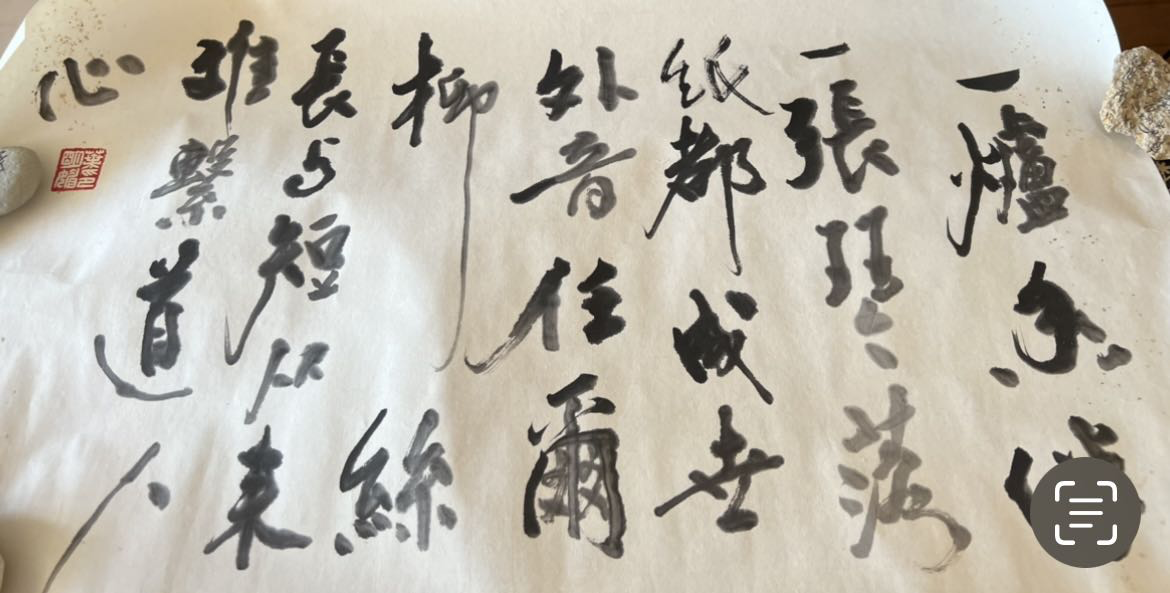 一爐香
一張琴落
紙都成世
外音任爾
柳絲
長与短从来
難繫道人
心